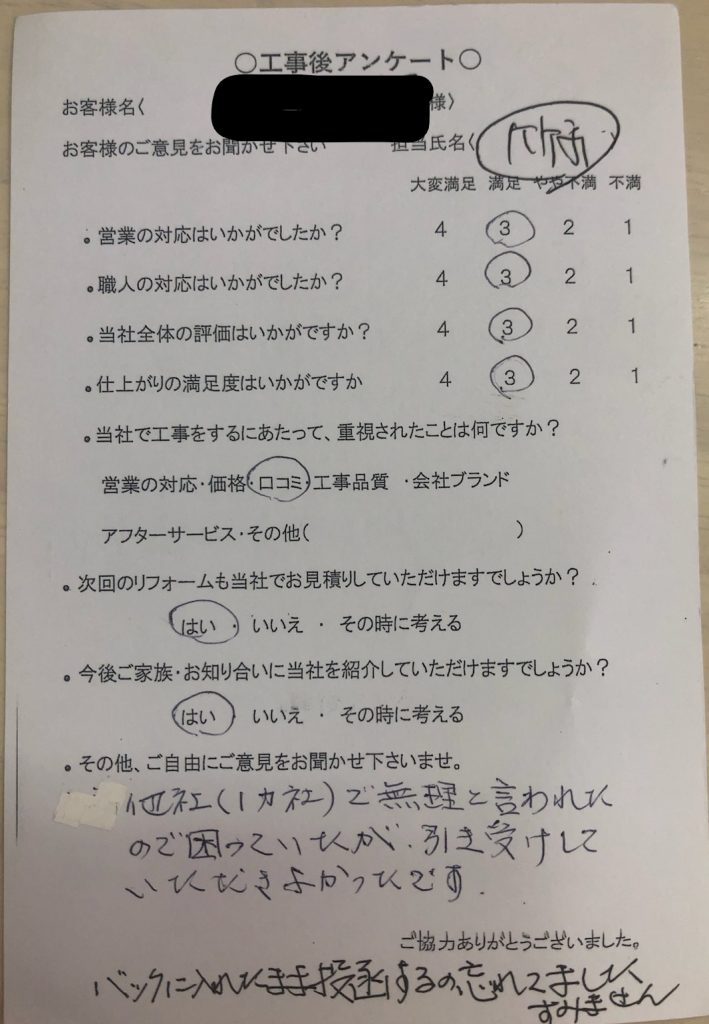 ○工事後アンケート○
お客様名〈 様〉
お客様のご意見をお聞かせ下さい 担当氏名〈
大変満足 満足 やや不満 不満
。営業の対応はいかがでしたか? 4 3 2 1
。職人の対応はいかがでしたか? 4 3 2 1
。当社全体の評価はいかがですか? 4 3 2 1
。仕上がりの満足度はいかがですか 4 3 2 1
。当社で工事をするにあたって、重視されたことは何ですか?
営業の対応・価格・口コミ・工事品質 ・会社ブランド
アフターサービス・その他( )
。次回のリフォームも当社でお見積りしていただけますでしょうか?
はい ・ いいえ ・ その時に考える
。今後ご家族・お知り合いに当社を紹介していただけますでしょうか?
はい ・ いいえ ・ その時に考える
。その他、ご自由にご意見をお聞かせ下さいませ。
他社(1カ社)で無理と言われた
ので困っていたが、引き受けして
いただきよかったです.
ご協力ありがとうございました。
バックに入れたまま投函するの忘れてました
すみません